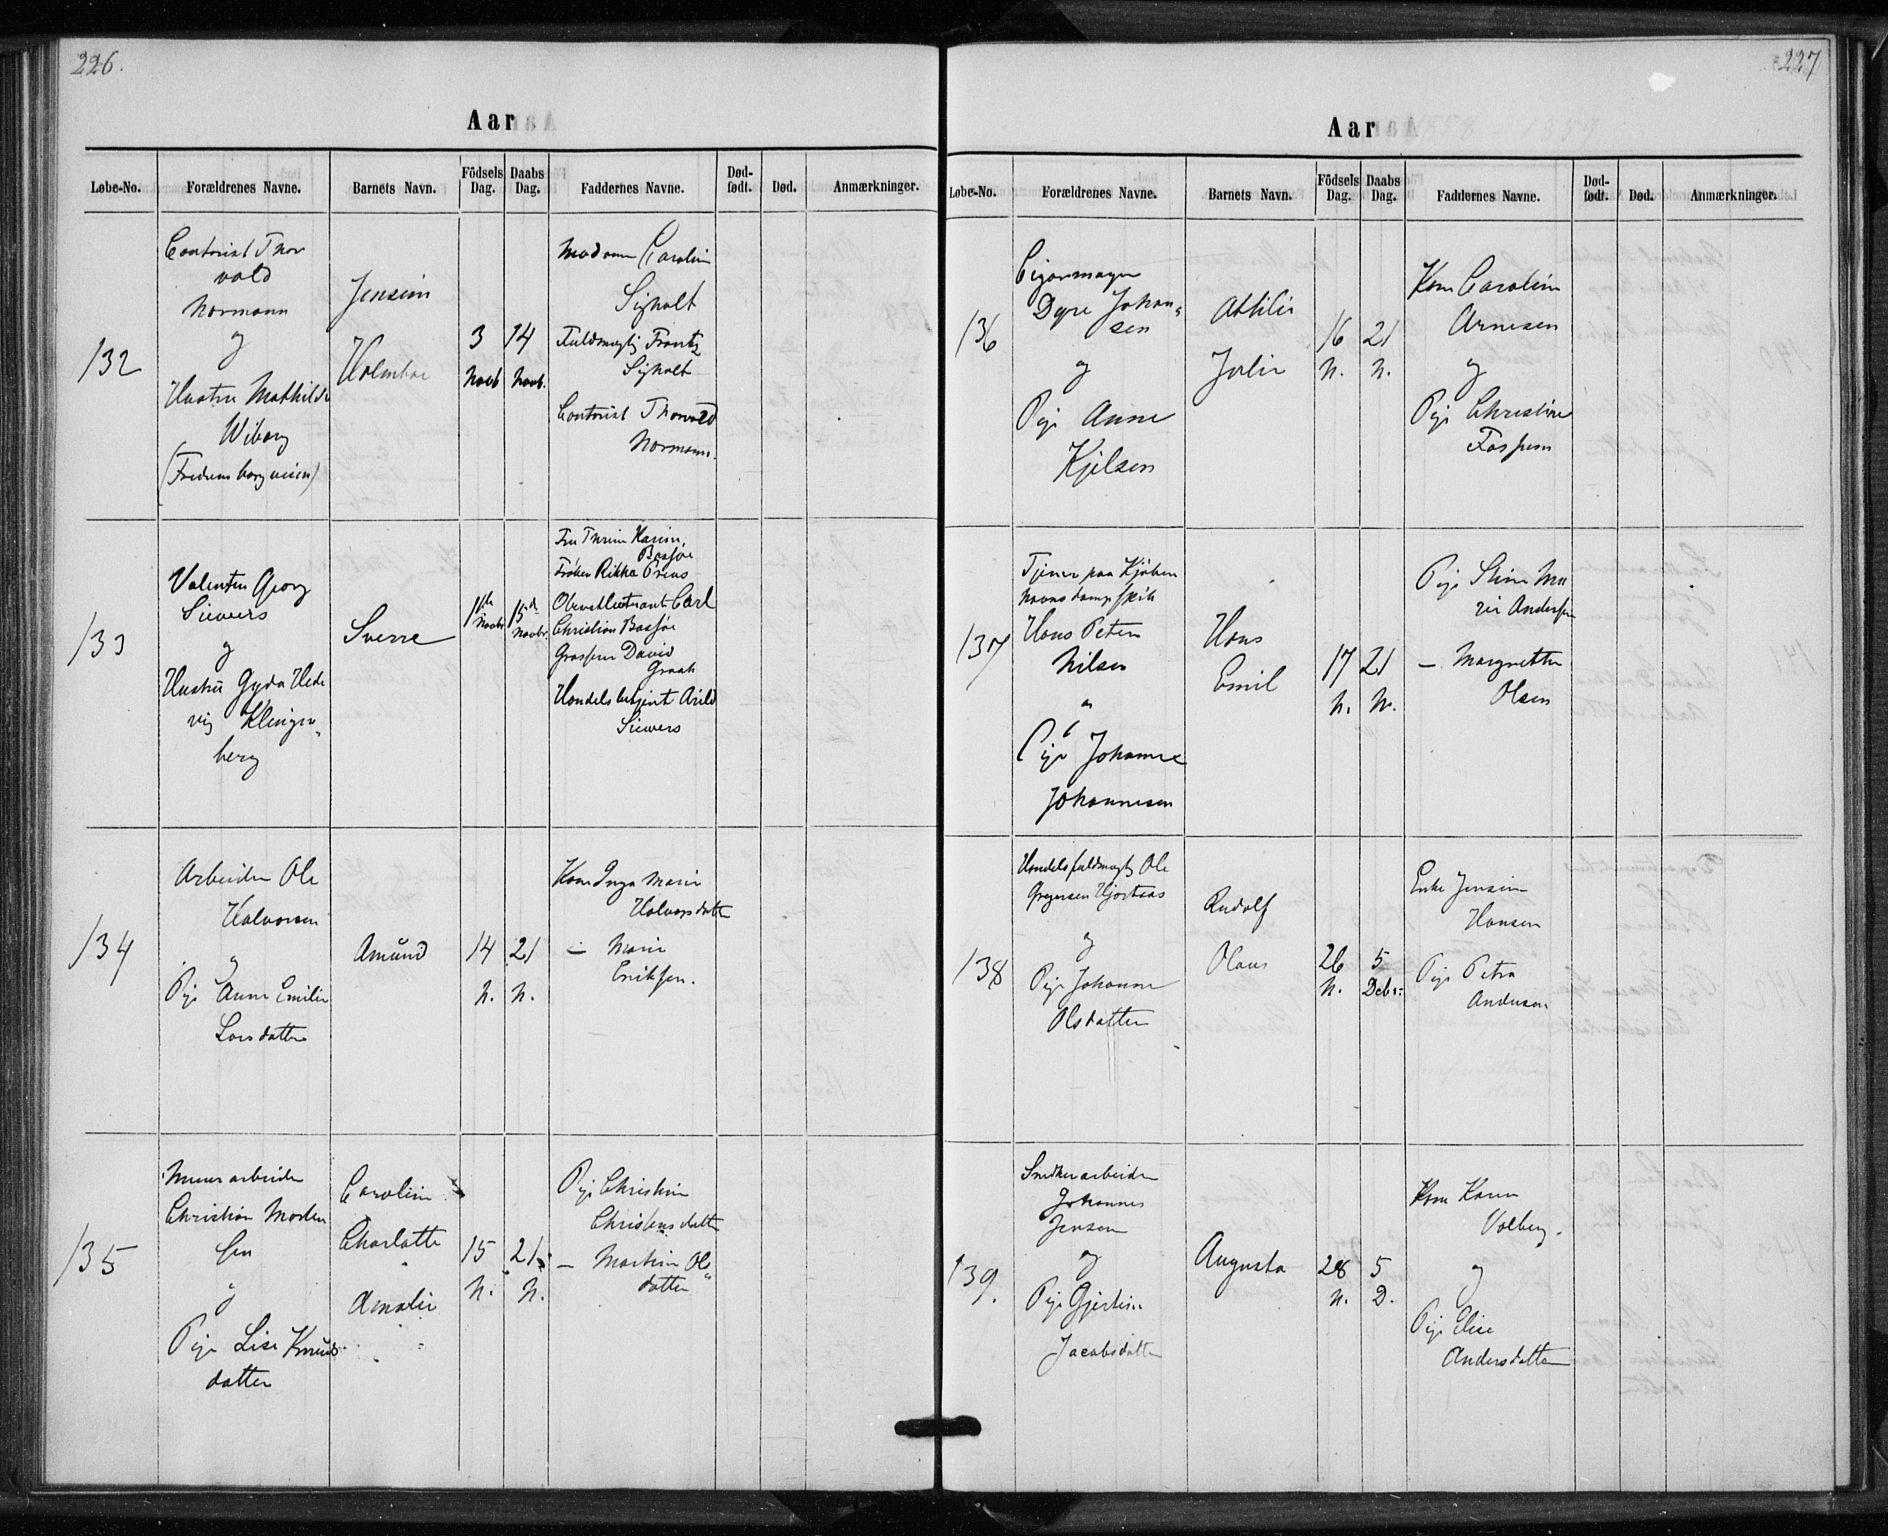 226.
Aar
Løbe-No. Forældrenes Navne. Barnets Navn. Fødsels Dag. Daabs Dag. Faddernes Navne. Død-født. Død. Anmærkninger.
132
Contorist Thor
vald
Normann
og
Hustru Mathilde
Wiborg
(Fredensborgveien)
Jensine
Holmboe
3
Novb
14
Novb.
Madame Caroline
Sigholt
Fuldmægtig Frantz
Sigholt
Contorist Thorvald
Normann.
133
Valentin Georg
Siewers
og
Hustru Gyda Hede
vig Klingen„
berg
Sverre
11te
Novbr
15de
Novbr.
Fru Thrine Karine,
Bassøe
Frøken Rikka Preus
Oberstlieutnant Carl
Christian Bassøe
Grosserer David
Graah
Handelsbetjent Arild
Siewers
134
Arbeider Ole
Halvorsen
og
Pige Anne Emilie
Larsdatter
Amund
14
N.
21
N.
Kone Inga Marie
Halvorsdatter
— Marie
Eriksen.
135
Murerarbeider
Christian Morten
sen
og
Pige Lise Knuds
datter
Caroline
Charlotte
Amalie
15
N.
21
N.
Pige Christine
Christensdatter
— Martine Ols
datter
227
Aar
Løbe-No. Forældrenes Navne. Barnets Navn. Fødsels Dag. Daabs Dag. Faddernes Navne. Død-født. Død. Anmærkninger.
136
Cigarmager
Dyre Johan„
sen
og
Pige Anne
Kjelsen
Attilie
Julie
16
N.
21
N.
Kone Caroline
Arnesen
og
Pige Christine
137
Tjener paa Kjøben
havns dampskib
Hans Peter
Nilsen
og
Pige Johanne
Johannesen
Hans
Emil
17
N.
21
N.
Pige Stine Ma
rie Andersen
— Margrethe
Olsen
138
Handelsfuldmægtig Ole
Gregersen Hjortaas
og
Pige Johanne
Olsdatter
Rudolf
Olaus
26
N.
5
Debr.
Enke Jensine
Hansen
Pige Petra
Andersen
139.
Snedkerarbeider
Johannes
Jensen
og
Pige Gjertine
Jacobsdatter
Augusta
28
N.
5
D.
Kone Karen
Volberg.
og
Pige Elise
Andersdatter